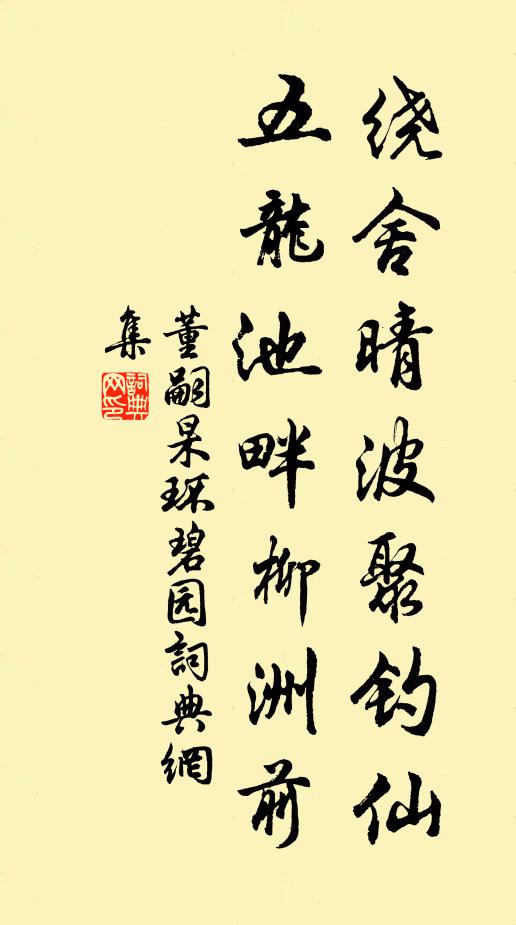 绕舍晴波聚钓仙
五龍池畔柳洲前
董嗣杲环碧园詞典網
集
詞典
网印